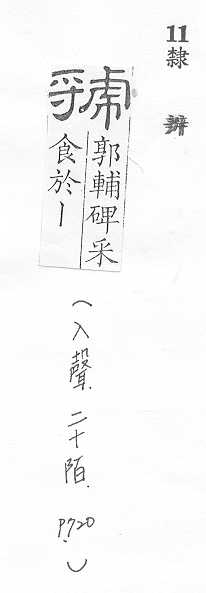 11隸辨
虢
郭輔碑采
食於丨
(入聲.二十陌.P.720)